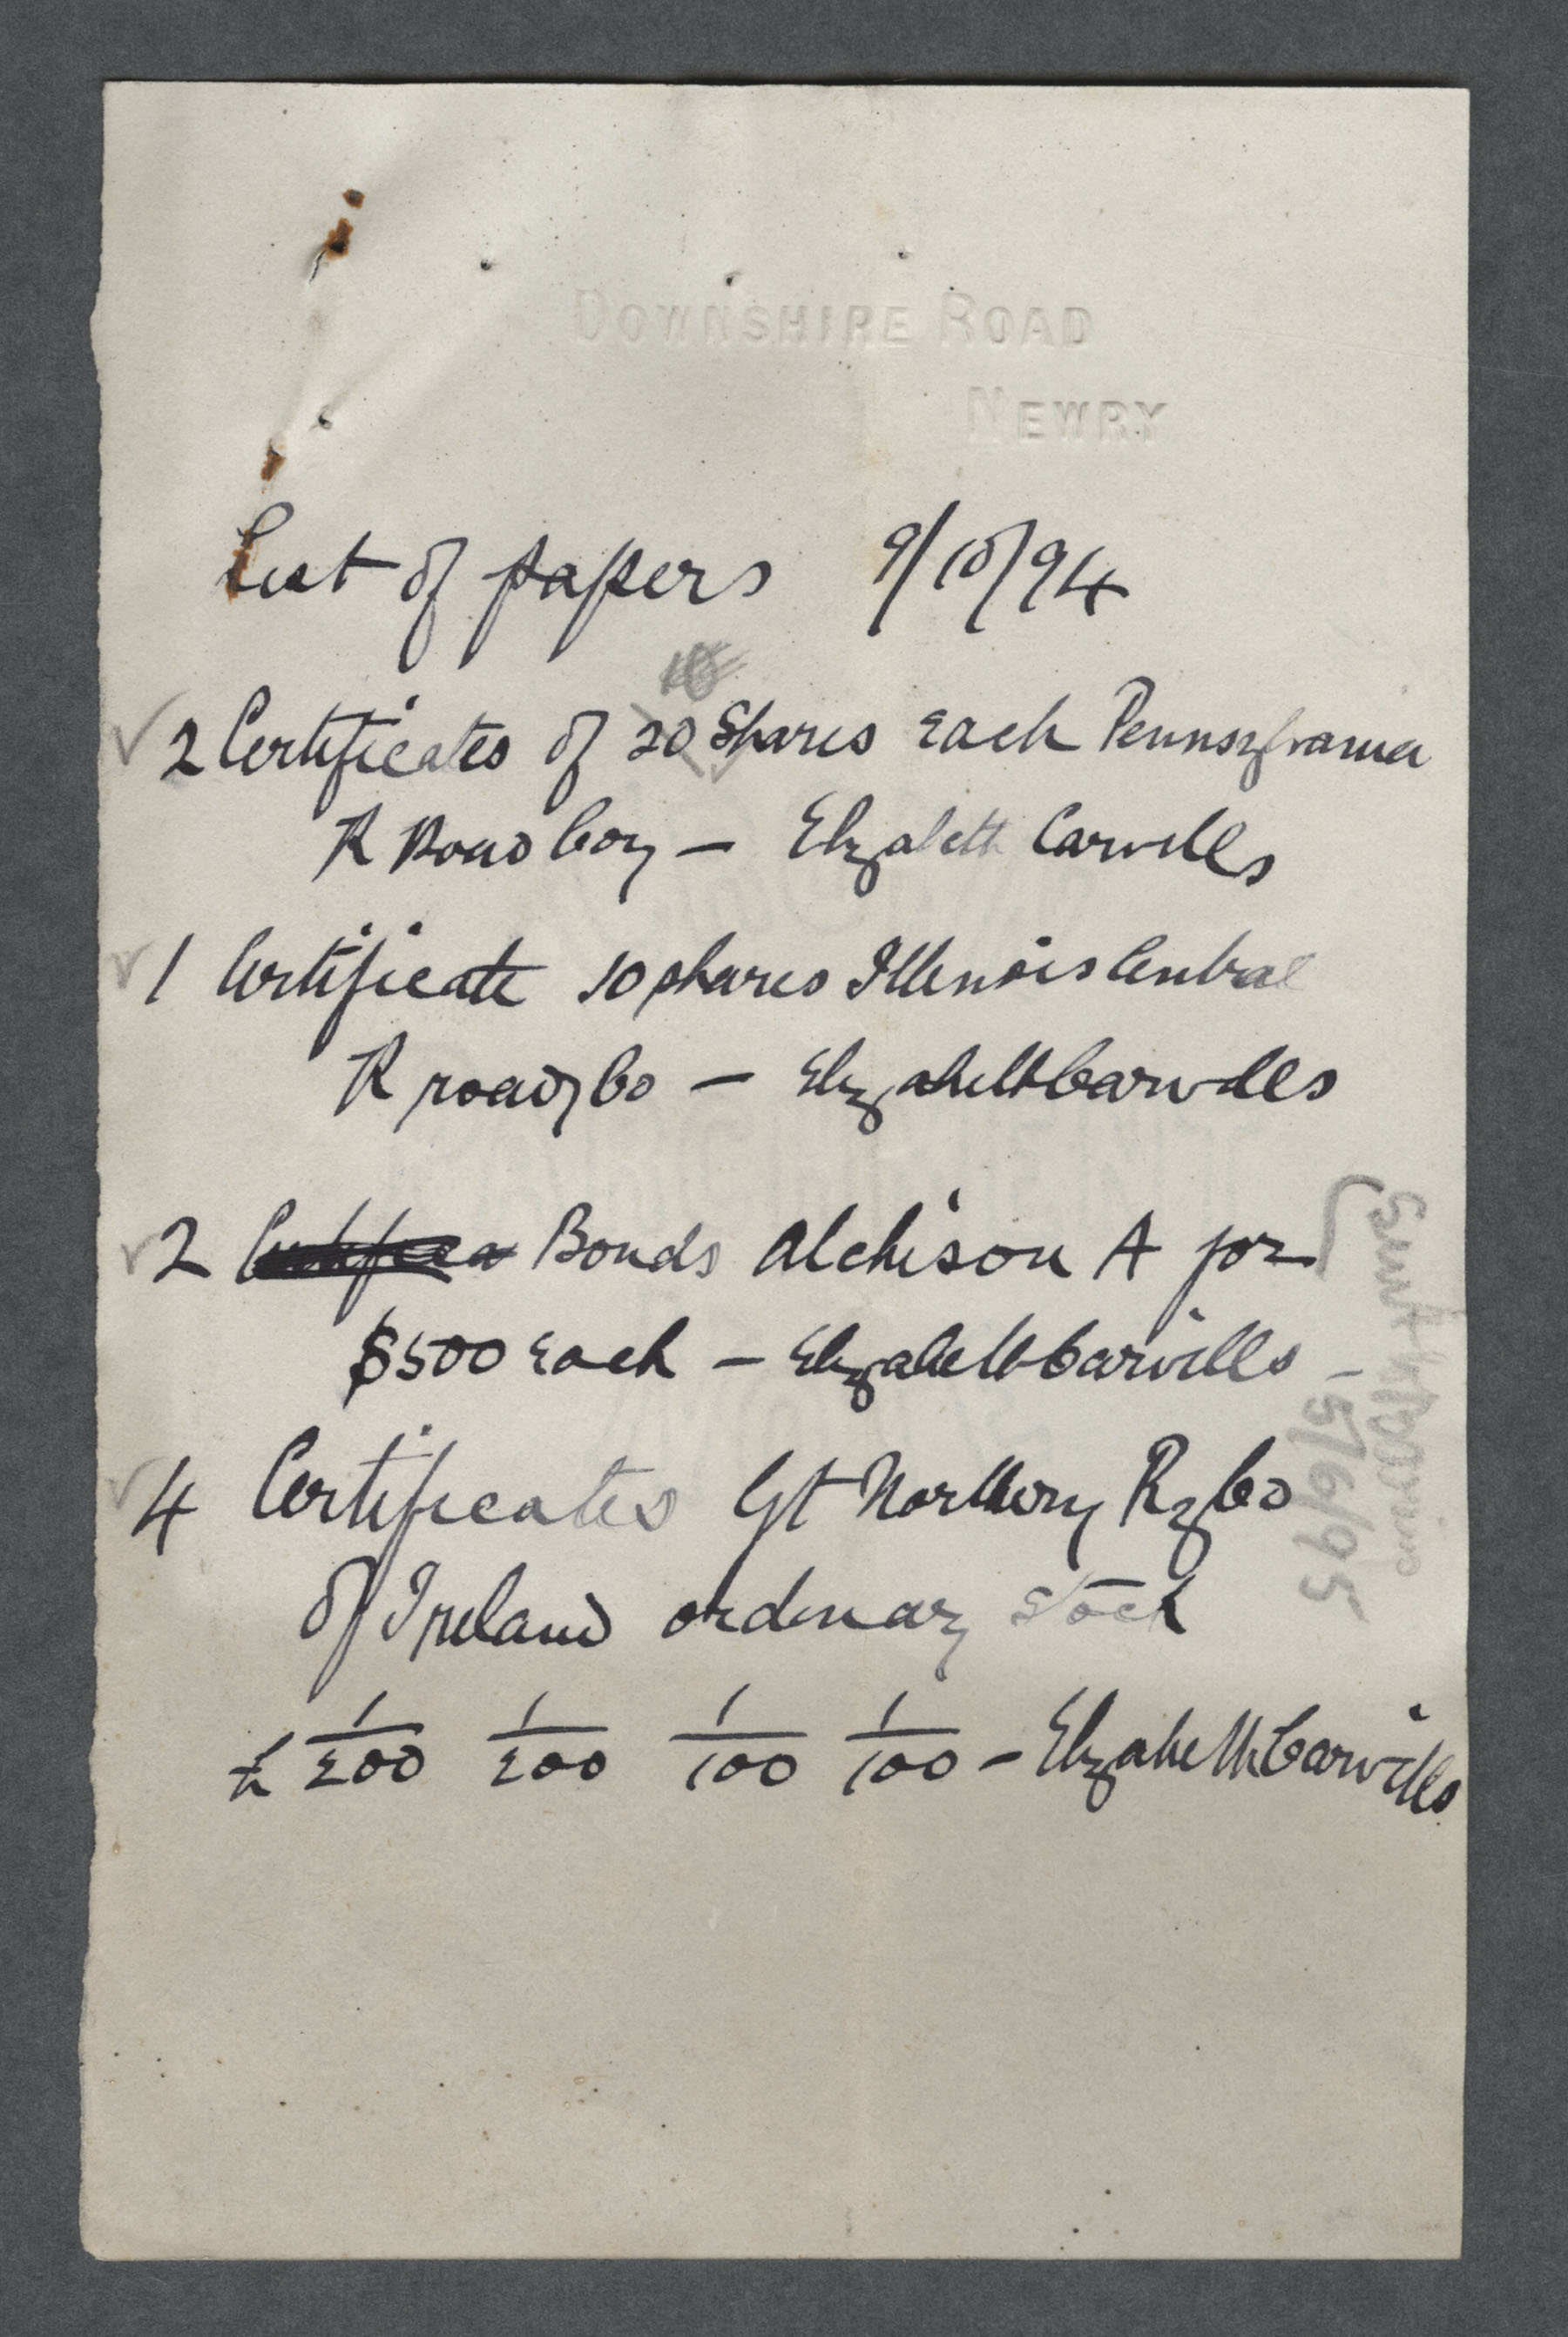 DOWNSHIRE ROAD
NEWRY
List of papers 9/10/94
✓ 2 Certificates of 20 Shares each Pennsylvania
R Road Coy – Elizabeth Carvills
✓ 1 Certificate 10 shares Illinois Central
R roady Co – Elizabeth Carvills
✓ 2 Certifica Bonds Atchison A for
$500 each – Elizabeth Carvills –
✓ 4 Certificates Gt Northern Ry Co
of Ireland ordinary stock
£ 1/200 1/200 1/100 1/100 – Elizabeth Carvills
Sent to
5/6/95